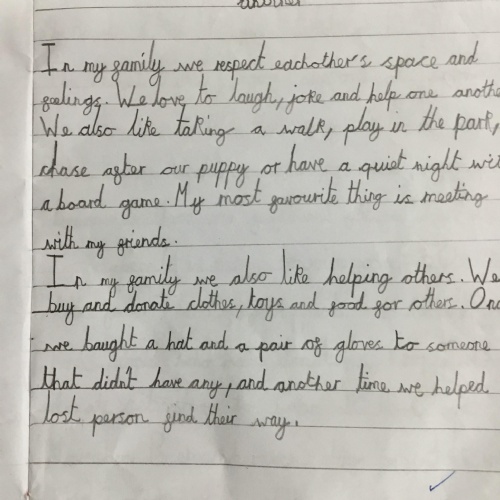 another
In my family we respect eachother's space and
feelings. We love to laugh, joke and help one anothe
We also like taking a walk, play in the park,
chase after our puppy or have a quiet night wi
a board game. My most favourite thing is meeting
with my friends.
In my family we also like helping others. We
buy and donate clothes, toys and food for others. Onc
we baught a hat and a pair of gloves to someone
that didn't have any, and another time we helped
lost person find their way.